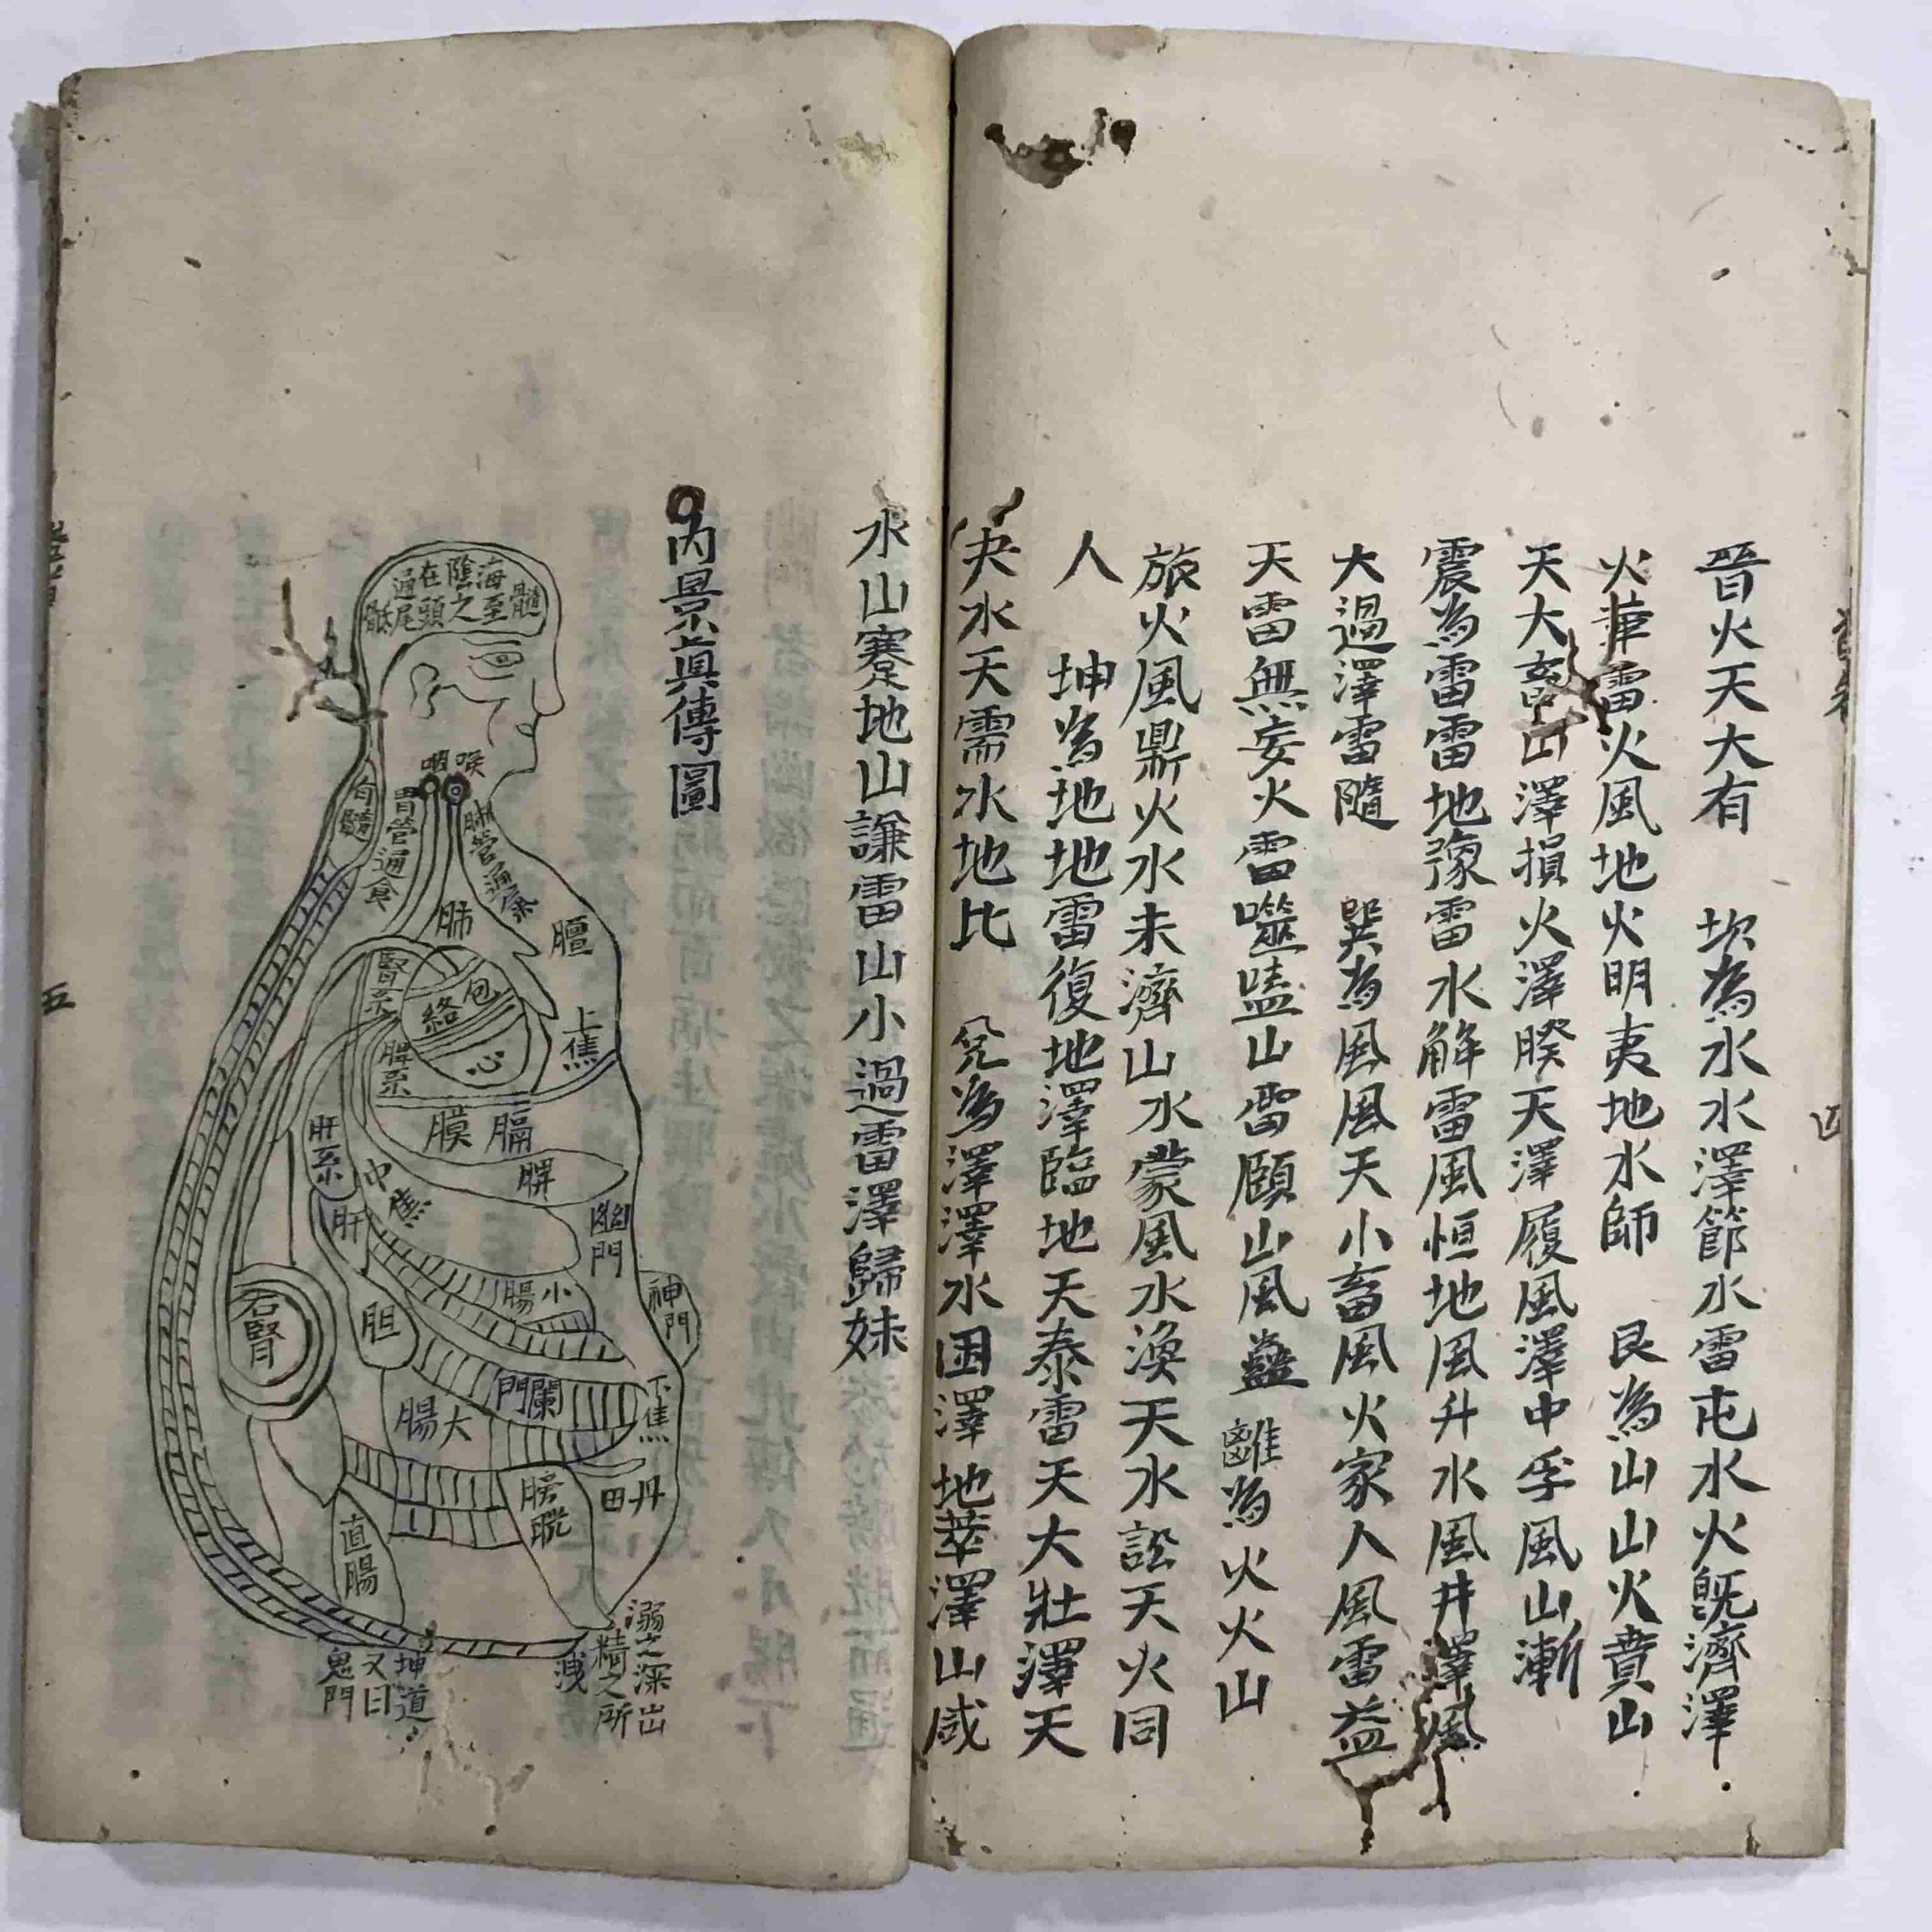 晉火天大有　坎為水水澤節水雷屯水火旣濟澤
火革雷火風地火明夷地水師　艮為山山火賁山
天大畜山澤損火澤睽天澤履風澤中孚風山漸
震為雷雷地豫雷水解雷風恒地風升水風井澤風
大過澤雷隨　巽為風風天小畜風火家人風雷益
天雷無妄火雷噬嗑山雷頤山風蠱　離為火火山
旅火風鼎火水未濟山水蒙風水渙天水訟天火同
人　坤為地地雷復地澤臨地天泰雷天大壯澤天
夬水天需水地比　兌為澤澤水困澤地萃澤山咸
四
水山蹇地山謙雷山小過雷澤歸妹
內景眞傳圖
髓
海至
陰之
在頭
通尾
骶
喉
咽
肺管通氣
胃管通食
脊髓
肺
膻
腎系
包絡
心
上焦
脾系
膈膜
脾
肝系
中焦
肝
幽門
小腸
神門
右腎
胆
闌門
下焦
大腸
膀胱
丹田
直腸
溺之深出
精之所
洩
坤道
又曰
鬼門
五